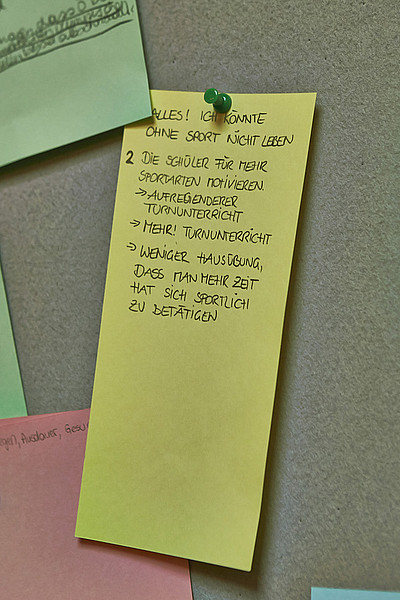 ALLES! ICH KÖNNTE
OHNE SPORT NICHT LEBEN
2 DIE SCHÜLER FÜR MEHR
SPORTARTEN MOTIVIEREN.
→ AUFREGENDERER
TURNUNTERRICHT
→ MEHR! TURNUNTERRICHT
→ WENIGER HAUSÜBUNG,
DASS MAN MEHR ZEIT
HAT SICH SPORTLICH
ZU BETÄTIGEN
Ausdauer,